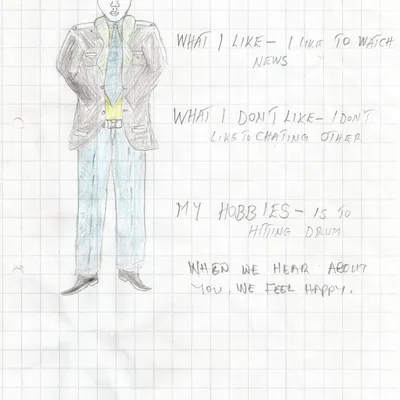 WHAT I LIKE - I LIKE TO WATCH
NEWS
WHAT I DON'T LIKE - I DON'T
LIKE TO CHATING OTHER
MY HOBBIES - IS TO
HITTING DRUM
WHEN WE HEAR ABOUT
YOU, WE FEEL HAPPY.